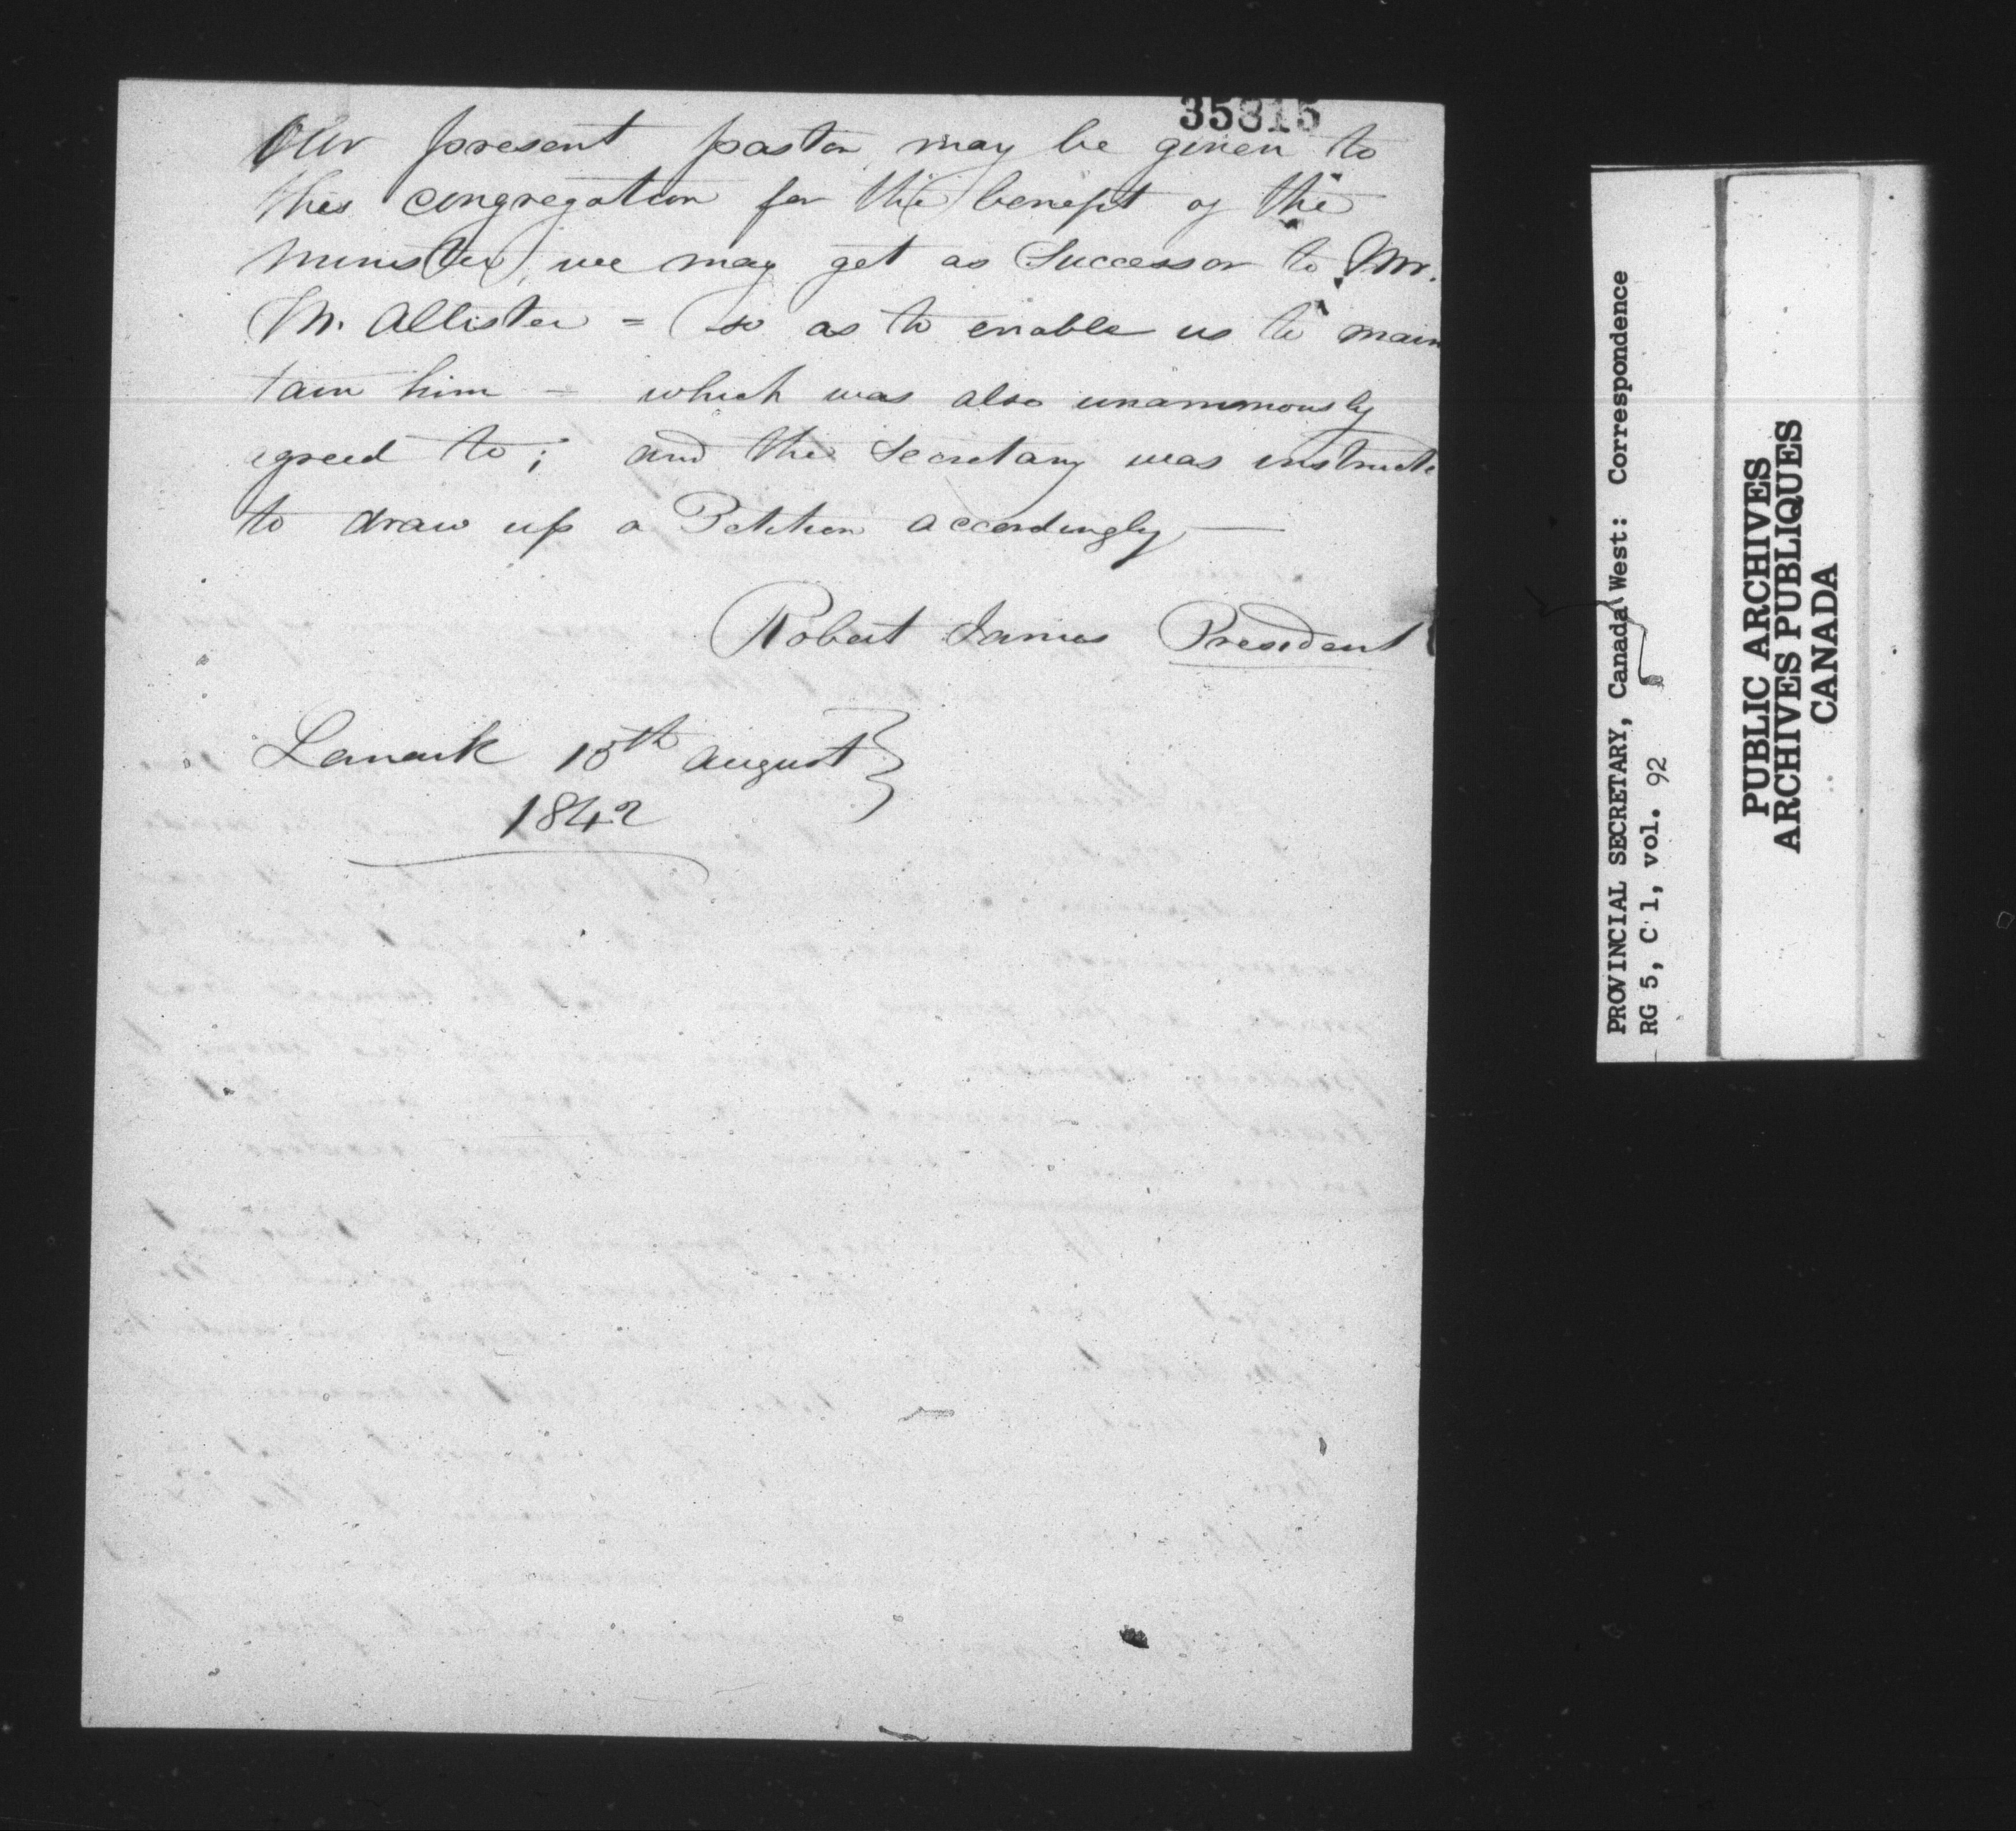 35315
Our present pastor may be given to
this congregation for the benefit of the
minister, we may get as Successor to Mr.
M. Allister = so as to enable us to main
tain him - which was also unanimously
agreed to; and the Secretary was instructe
to draw up a Petition accordingly —
Robert James President
Lanark 15th august
1842
PROVINCIAL SECRETARY, Canada West: Correspondence
RG 5, C 1, vol. 92
PUBLIC ARCHIVES
ARCHIVES PUBLIQUES
CANADA